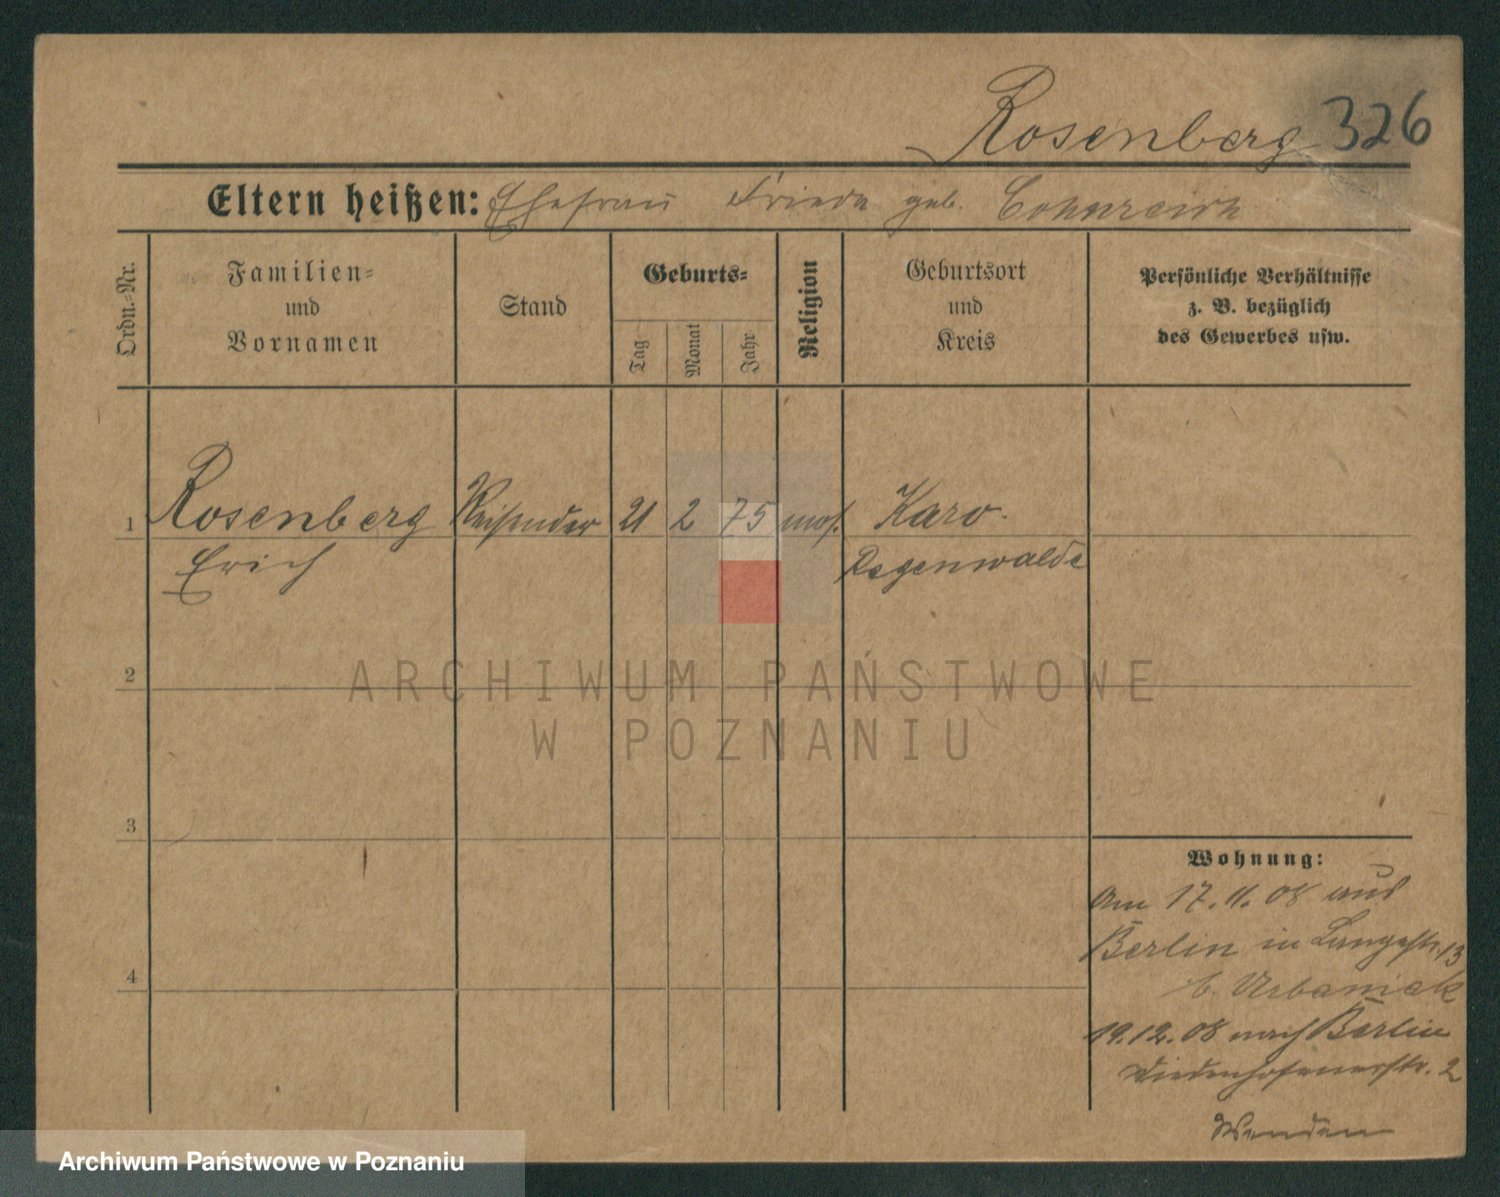 Rosenberg 326
Eltern heißen: Ehefrau Friede geb. Cohnreich
Ordn.-Nr.
Familien-
und
Vornamen
Stand
Geburts-
Tag
Monat
Jahr
Religion
Geburtsort
und
Kreis
Persönliche Verhältnisse
z. B. bezüglich
des Gewerbes usw.
1 Rosenberg Reisender 21 2 75 mos. Karo
Erich Regenwalde
2
3
4
Wohnung:
Am 17.11.08 aus
Berlin in Langestr. 13
b. Urbaniak
19.12.08 nach Berlin
2
Wenden
ARCHIWUM PAŃSTWOWE
W POZNANIU
Archiwum Państwowe w Poznaniu